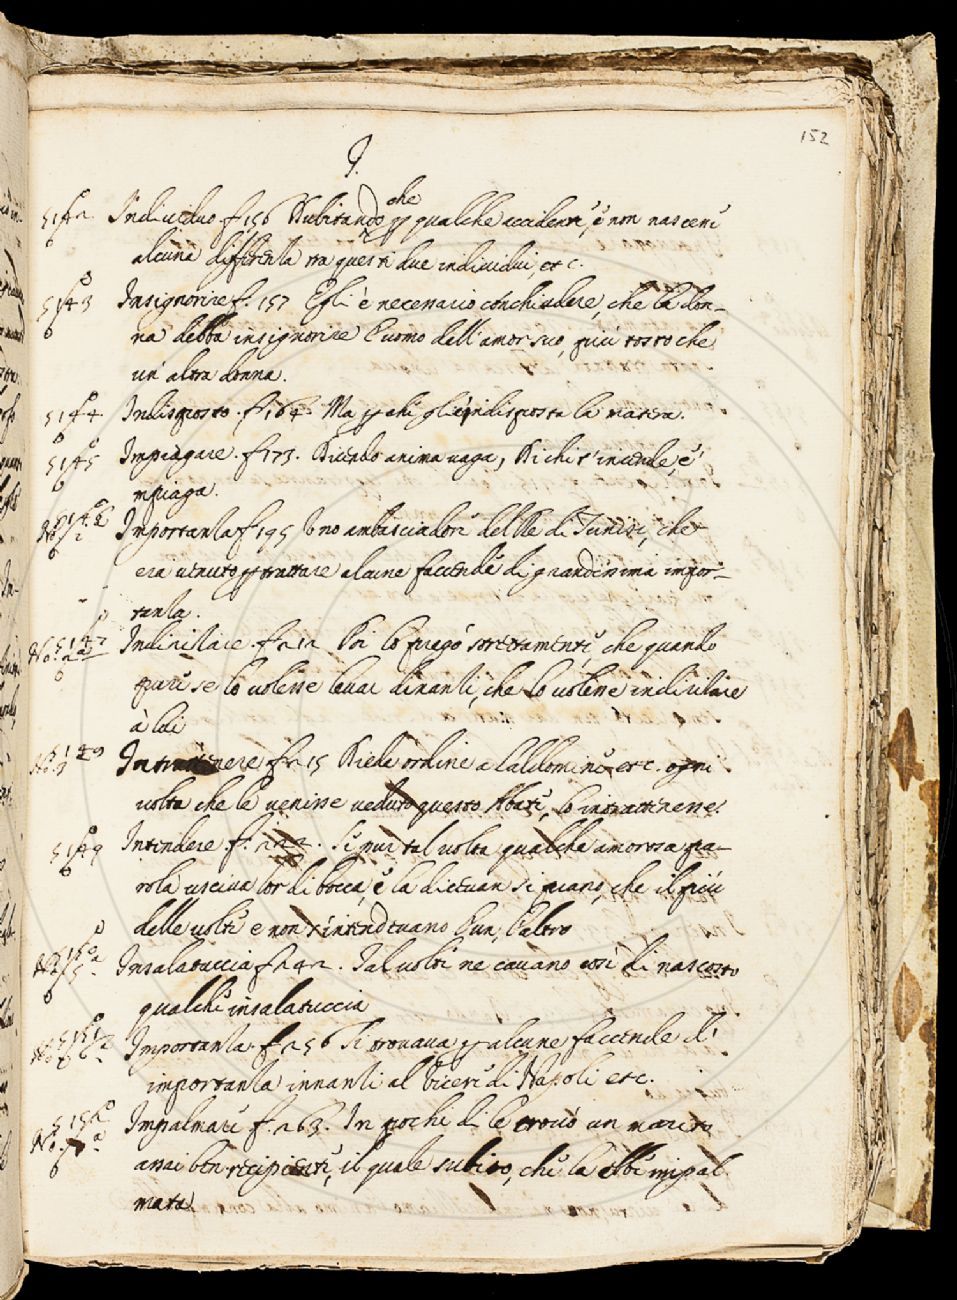 152
I.
Individuo f. 156 Dubitando che per qualche accidente, e non nascere
alcuna differenza tra questi due individui, etc.
5143 Insignorire f. 157 Egli è necessario conchiudere, che la don-
na debba insignorire l'uomo dell'amor suo, più tosto che
un'altra donna.
5144 Indisposto. f. 164. Ma per chi gli indisposta la materia.
5145 Impiagare. f. 173. Dicendo anima vaga, Di chi t'incende, e
mpiaga.
Importanza f. 195 Uno ambasciadore del Re di Tunisi, che
era venuto per trattare alcune faccende di grandissima impor-
tanza.
5147 f. 212 Poi lo pregò strettamente, che quando
pure se lo volesse levar dinanzi, che lo volesse
à lui
f. 215 Diede ordine a etc. ogni
volta che le venisse veduto questo Abate, lo intrattenesse.
5149 Intendere f. 222. Si pur tal volta qualche amorosa pa-
rola usciva lor di bocca, e la dicevan si piano, che il più
delle volte e non s'intendevano l'un, l'altro
Insalatuccia f. 242. Tal volte ne cavano così di nascosto
qualche insalatuccia
Importanza. f. 256 Si trovava per alcune faccende d'
importanza innanzi al Vicere di Napoli etc.
Impalmare f. 263. In pochi dì le trovò un marito
assai ben recipiente, il quale subito, che la ebbe impal
mata